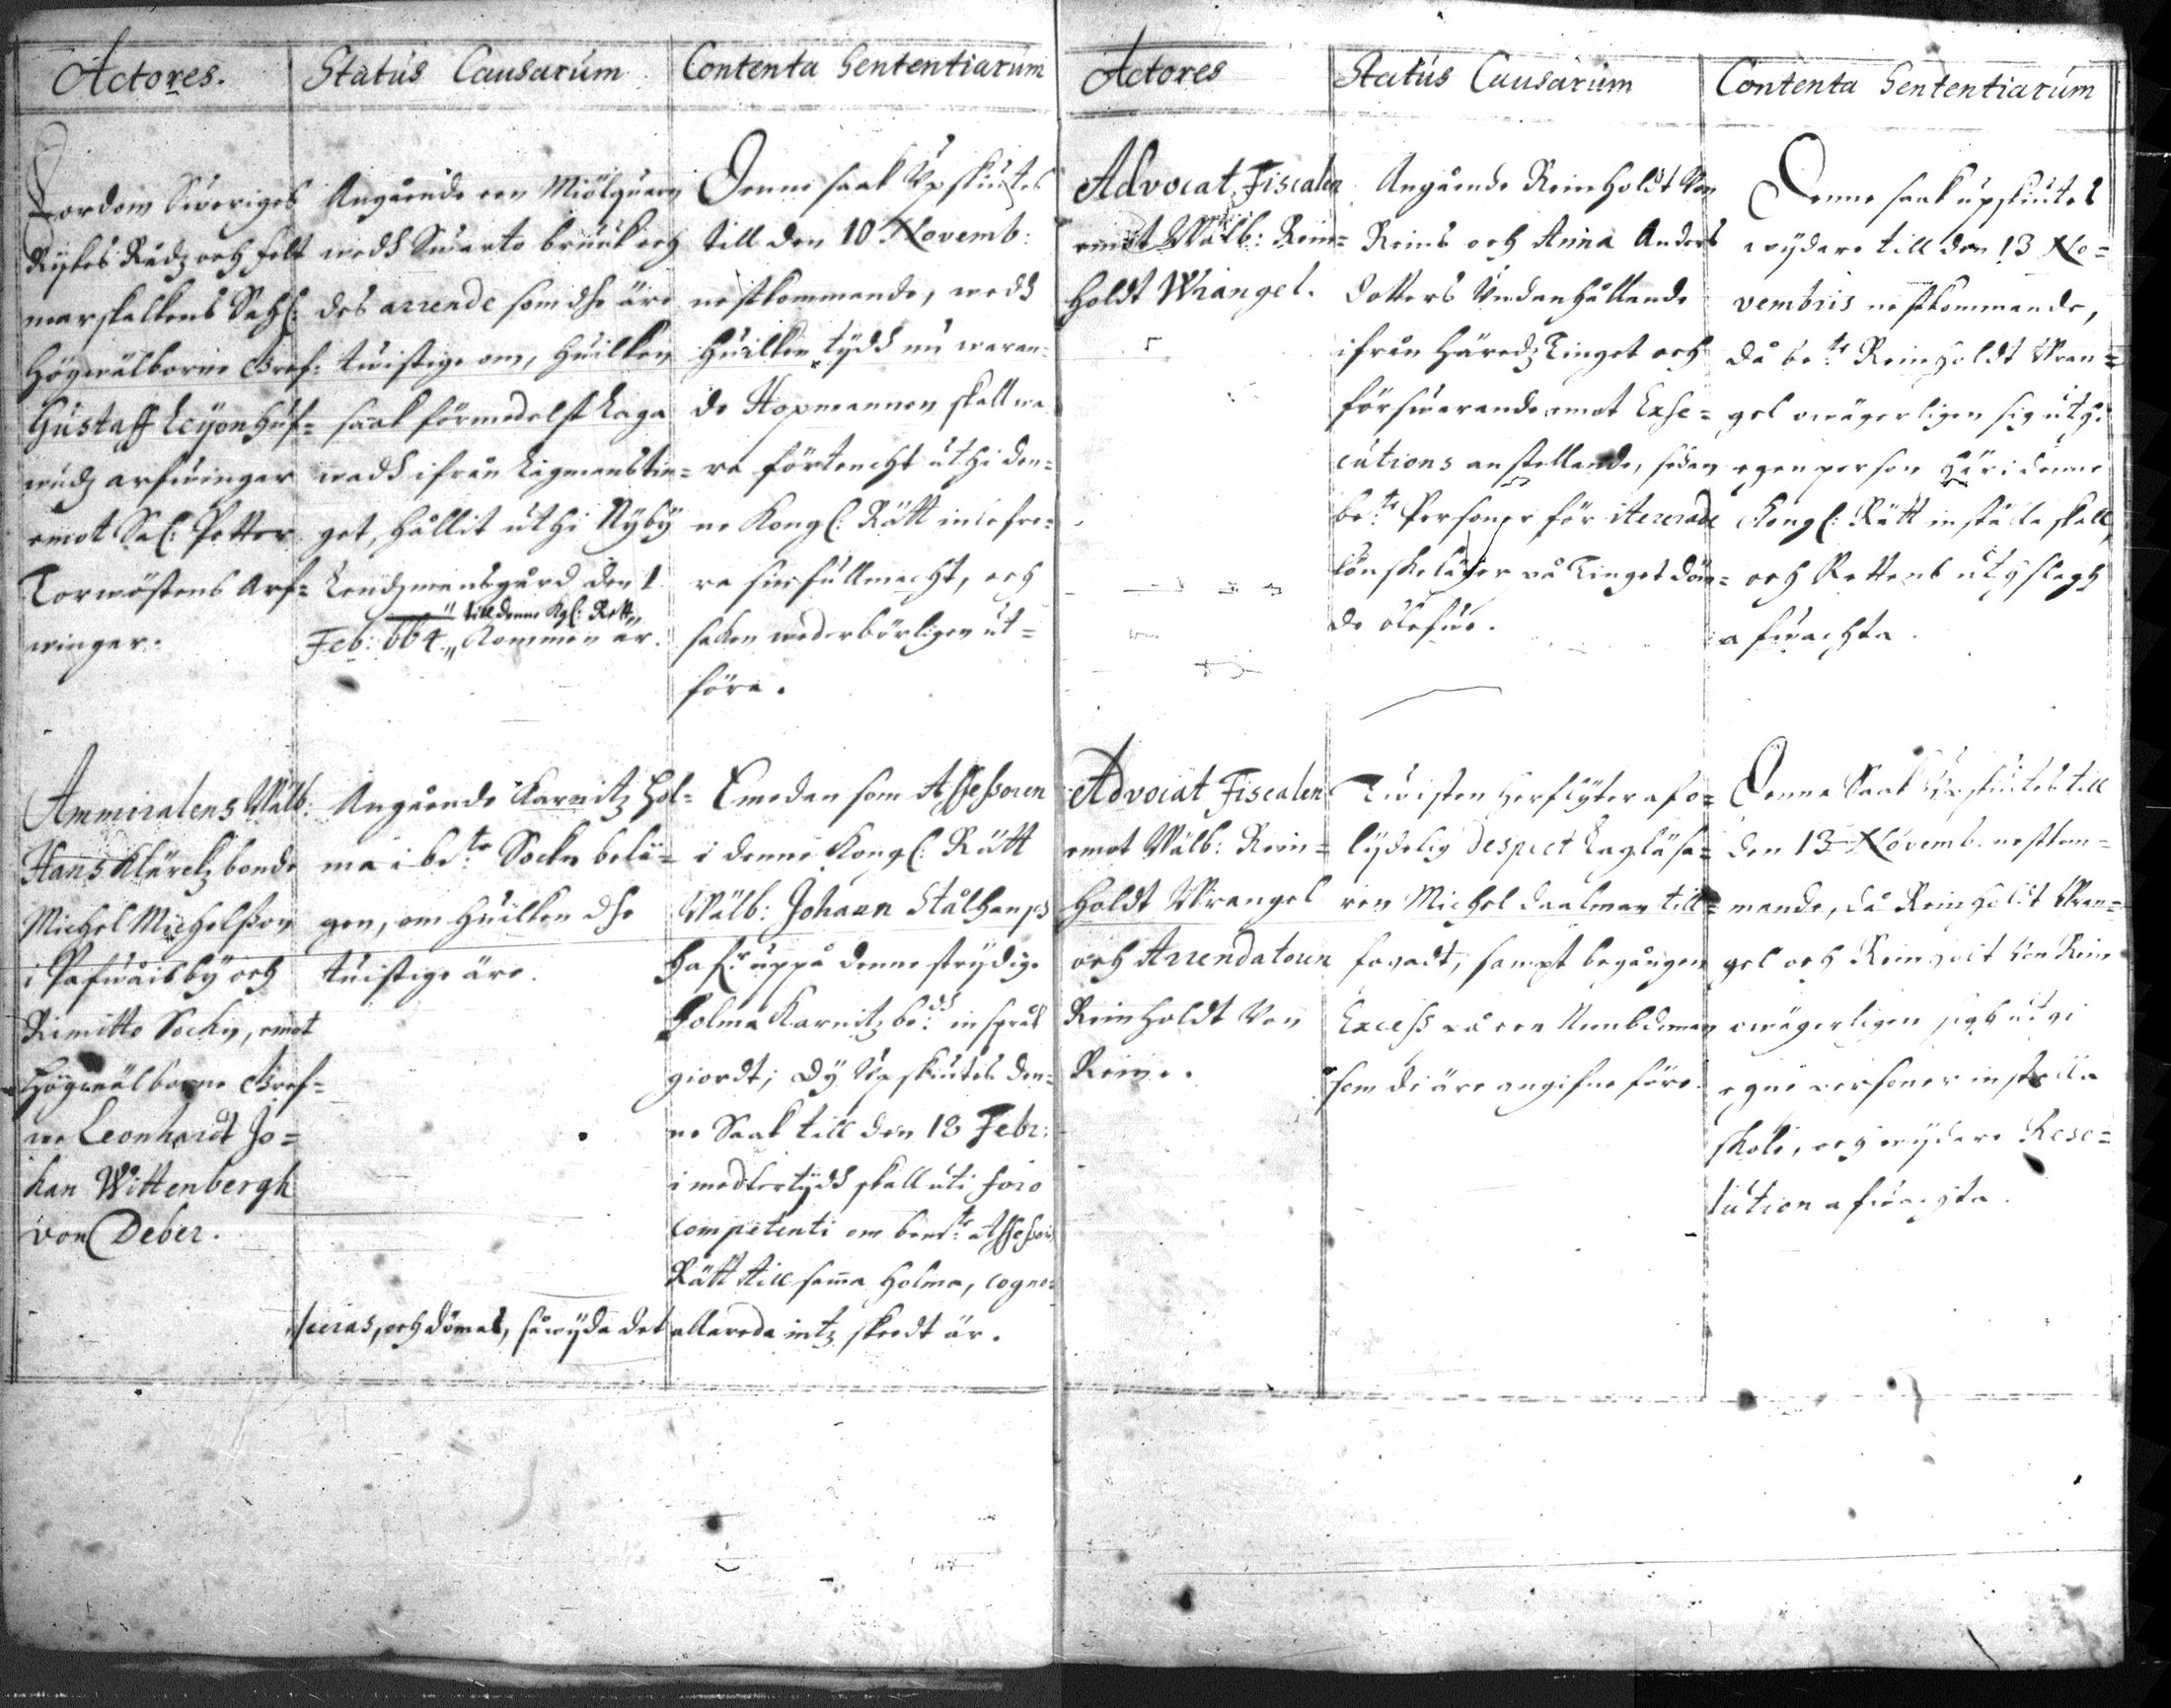 Actores.
Status Causarum
Contenta Sententiarum
Fordom Sweriges
Rijkes Rådz och felt
marskalkens Sahl:
Högwälborne Gref:
Gustaff Leÿonhuf=
wudz arfwingar
emot Sal: Petter
Torwöstens Arf=
wingar.
Angående een Miölquarn
widh Swarto bruuk och
des arrende som dhe äre
twistige om, huilken
saak förmedelst Laga
wadh ifrån Lagmanstin=
get, hållit uthi Nÿbÿ
Lendzmansgård den 1
till denne Kgl: Rätt
Feb: 664. Kommen är.
Denne saak Upskiutes
till den 10 Novemb:
nestkommande, medh
huilken tijdh nu waran=
de Hopmannen skall wa
ra förtencht uthi den=
ne Kongl: Rätt inlefre=
ra sin fullmacht, och
saken wederbörligen ut=
föra.
Ammiralens Wälb:
Hans Klärckz bonde
Michel Michelsson
i
bÿ och
Rimitto Sochn, emot
Högwälborne Gref=
we Leonhardt Jo=
han Wittenbergh
von Deber.
Angående Karnitz Hol=
ma i be:te Sochn belä=
gen, om huilken dhe
tuistige äre.
Emedan som Assessoren
i denne Kongl: Rätt
Wälb: Johann Stålhanss
hafr: uppå denne strÿdige
Holma Karnitz be:dh inspråk
giordt; Dÿ Upskiutes den=
ne Saak till den 18 Febr:
i medlertijdh skall uti foro
competenti om bem:te Assessors
Rätt till sam̄a Holma, cogno=
sceras, och dömas, såwÿda det allareda intz skedt är.
Actores
Status Causarum
Contenta Sententiarum
Advocat Fiscalen
emot Wälb: Rein=
holdt Wrangel.
Angående Reinholdt Von
Reins och Anna Anders
dotters Undanhållande
ifrån Häredz Tinget och
förswarande emot Exse=
cutions anstellande, sedan
be:te Personer för itererade
lönskeläger på Tinget döm=
de blefwe.
Denne saak upskiutes
wÿdare till den 13 No=
vembris nestkommande,
då be:te Reinholdt Wran=
gel owägerligen sig uthi
egen person här i denne
Kongl: Rätt inställa skall,
och Rettens utslagh
afwachta.
Advocat Fiscalen
emot Wälb: Rein=
holdt Wrangel
och Arrendatorn
Reinholdt Von
Rein.
Twisten herflÿter af o=
lÿdelig despect Lagläsa=
ren Michel Daalman till=
fogadt, sampt begången
Excess på een Nembdeman
som de äre angifne före.
Denna Saak Upskiutes till
den 13 Novemb. nestkom=
mande, då Reinholdt Wran=
gel och Reinholt Von Rein
owägerligen sigh uthi
egne personer inställa
skole, och wÿdare Reso=
lution afwachta.